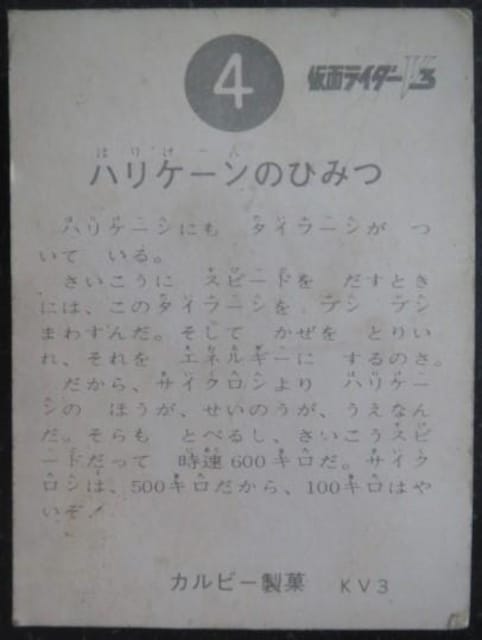 4
仮面ライダーV3
はりけーん
ハリケーンのひみつ
ハリケーンにも タイフーンが つ
いて いる。
さいこうに スピードを だすとき
には、このタイフーンを ブンブン
まわすんだ。そして かぜを とりい
れ、それを エネルギーに するのさ。
だから、サイクロンより ハリケー
ンの ほうが、せいのうが、うえなん
だ。そらも とべるし、さいこうスピ
ードだって 時速600キロだ。サイク
ロンは、500キロだから、100キロはや
いぞ!
カルビー製菓 KV3